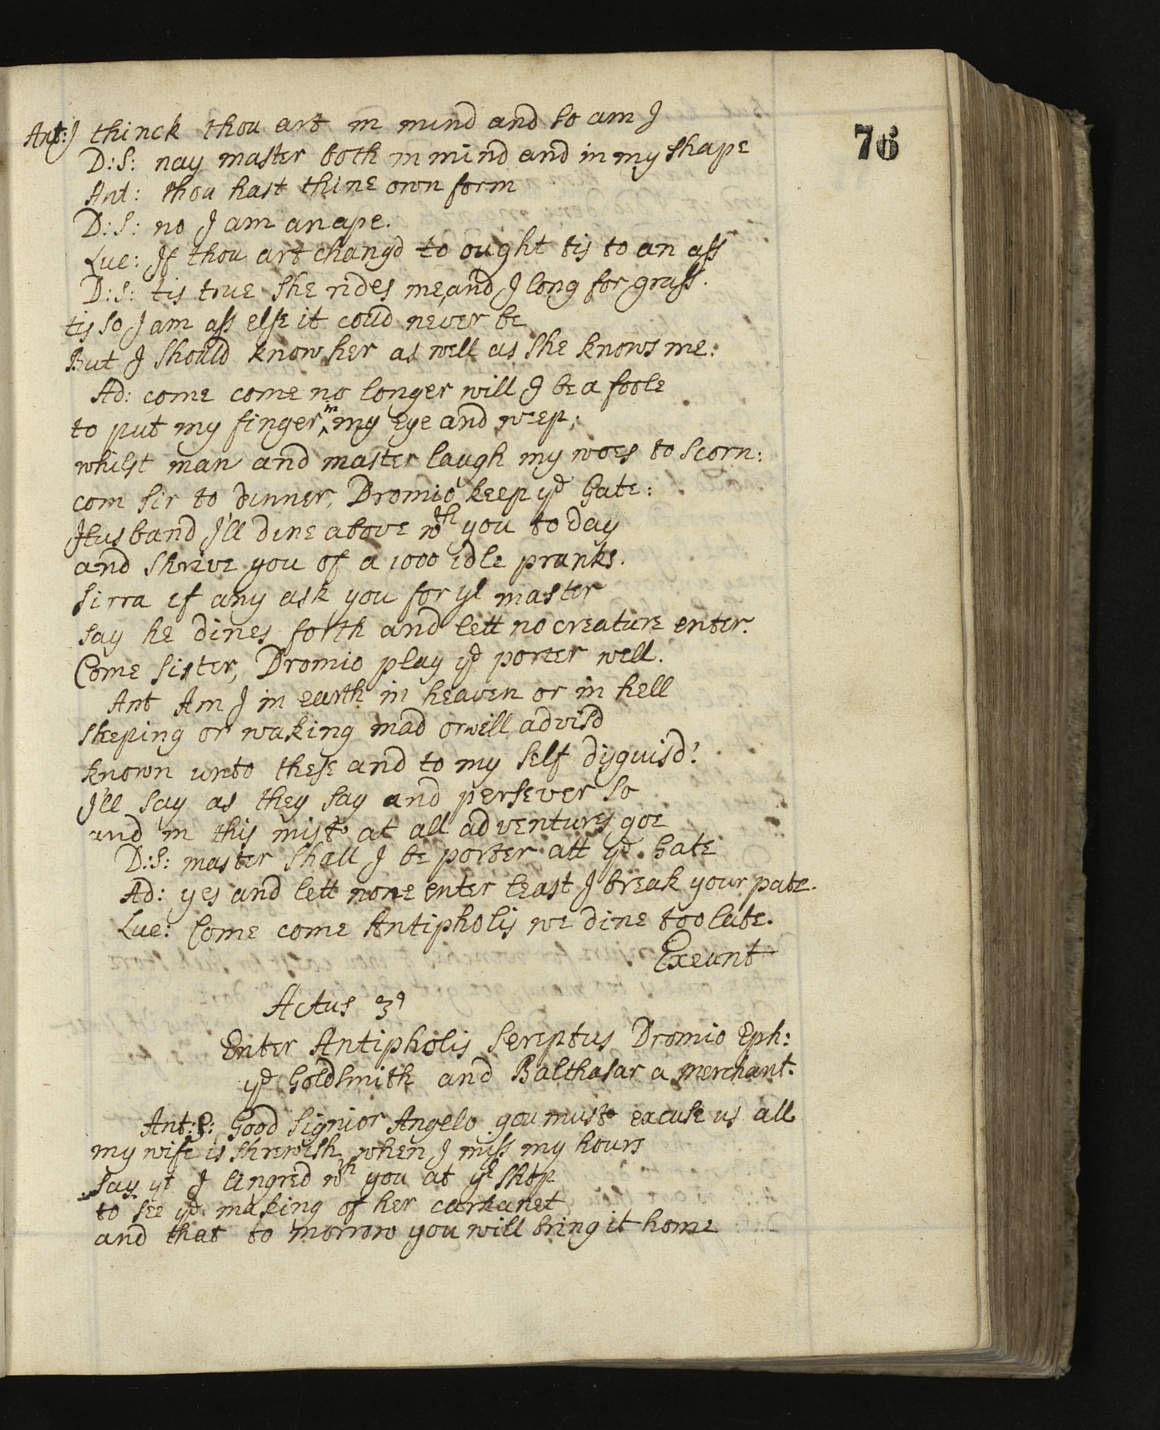 76
Ant: I thinck thou art in mind and so am I
D:S: nay master both in mind and in my shape
Ant: thou hast thine own form
D:S: no I am an ape.
Luc: If thou art changd to ought tis to an ass
D:S: tis true she rides me and I long for grass.
tis so I am ass else it coud never be
But I should know her as well as she knows me:
Ad: come come no longer will I be a foole
to put my finger ^in my Eye and weep;
whilst man and master laugh my woes to scorn:
com sir to dinner, Dromio keep ye Gate:
Husband I'll dine above wth you to day
and shrive you of a 1000 idle pranks.
Sirra if any ask you for yr master
say he dines forth and lett no creature enter.
Come sister, Dromio play ye porter well.
Ant Am I in earth in heaven or in hell
sleeping or waking mad or well advisd
known unto these and to my self disguisd!
I'll say as they say and persever so
and in this mist at all adventures goe
D:S: master shall I be porter att ye Gate
Ad: yes and lett none enter least I break your pate.
Luc: Come come Antipholis we dine too late.
Exeunt
Actus 3s
Enter Antipholis Sereptus Dromio Eph:
ye Goldsmith and Balthasar a merchant.
Ant:S: Good Signior Angelo you must excuse us all
my wife is shrewish when I miss my hours
say yt I lingred wth you at yr shop
to see ye making of her carkanet
and that to morrow you will bring it home